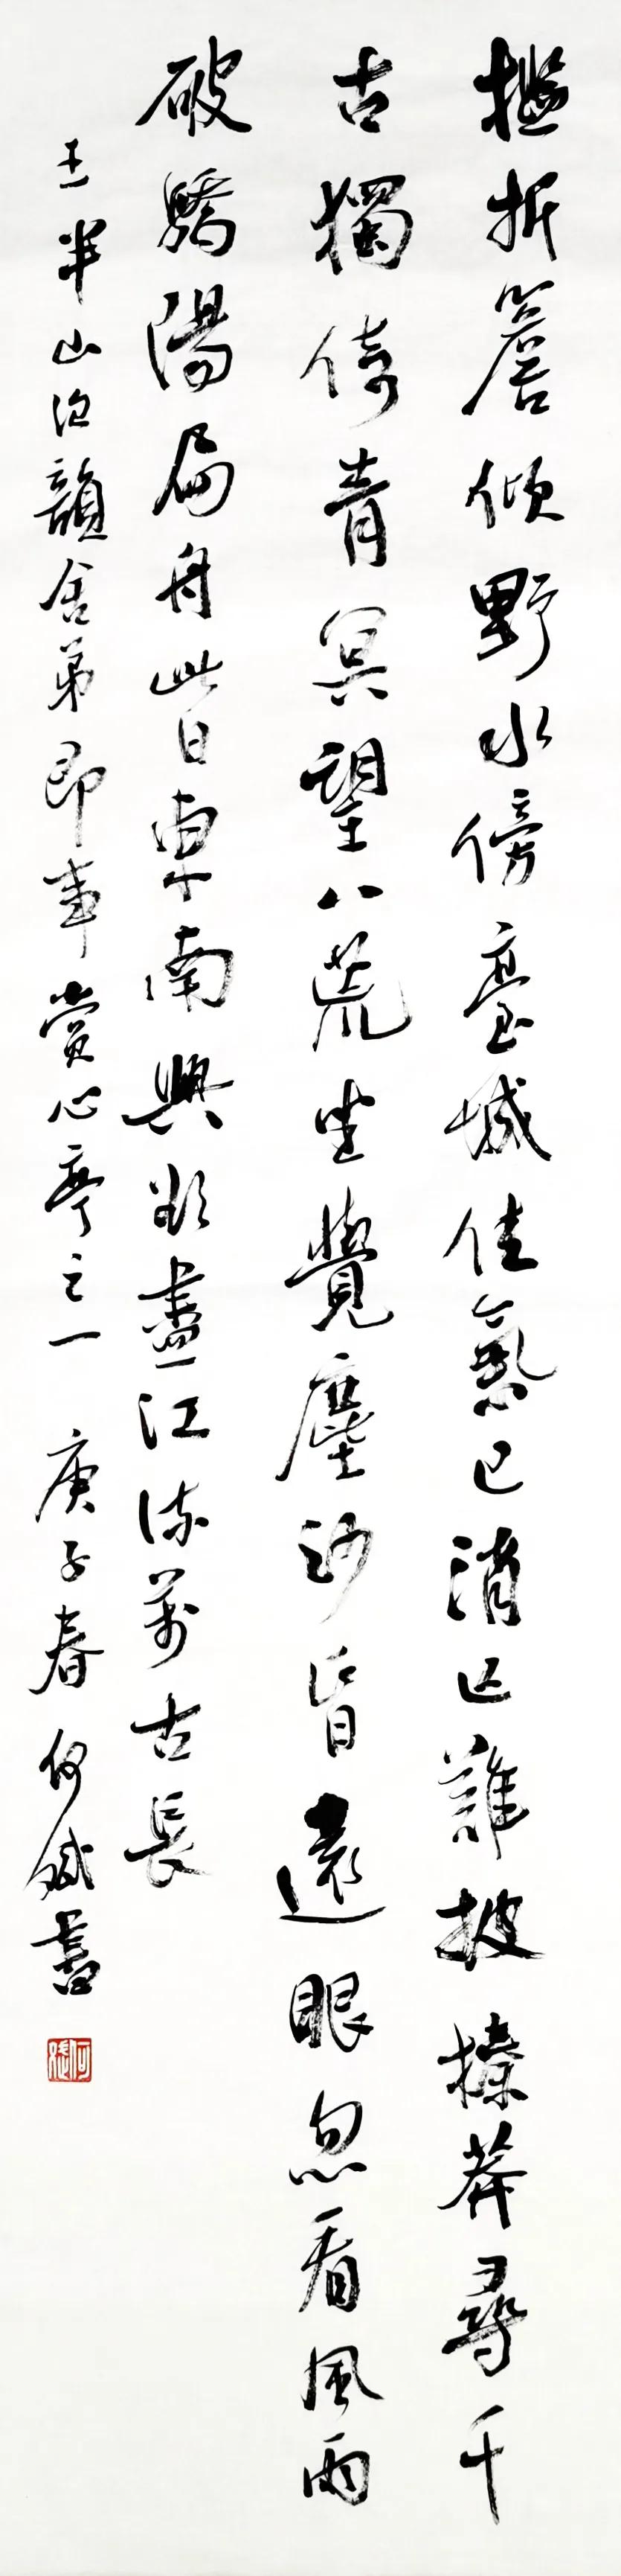 檻折簷傾野水傍臺城佳氣已消亡難披榛莽尋千
古獨倚青冥望八荒坐覺塵沙昏遠眼忽看風雨
破驕陽扁舟此日東南興欲盡江流萬古長
王半山次韻舍弟即事賞心亭之一 庚子春 何斌書